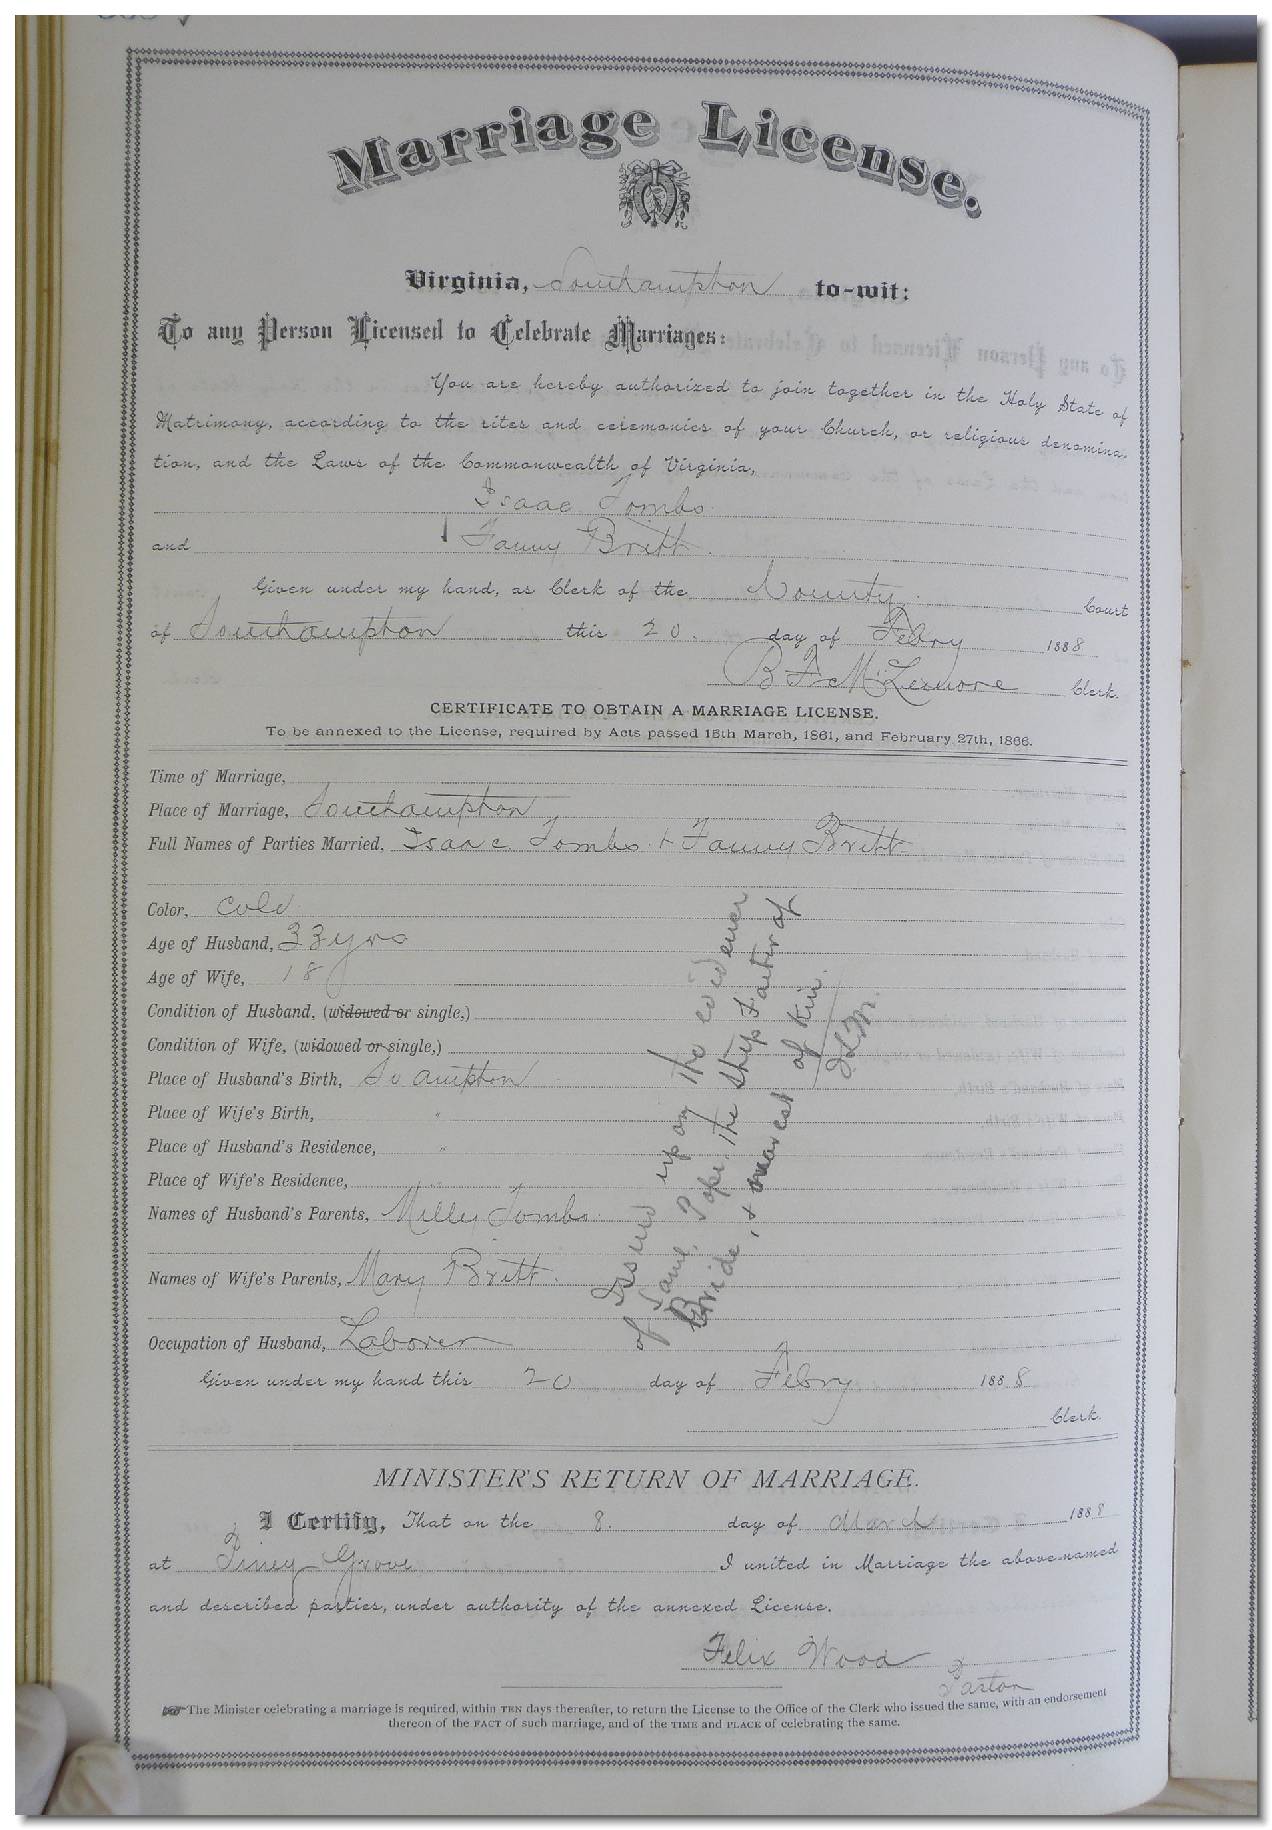 Marriage License.
Virginia, Southampton to-wit:
To any Person Licensed to Celebrate Marriages:
You are hereby authorized to join together in the Holy State of
Matrimony, according to the rites and ceremonies of your Church, or religious denomina-
tion, and the Laws of the Commonwealth of Virginia,
Isaac Tombs
and Fanny Britt.
Given under my hand, as Clerk of the County Court
of Southampton this 20. day of Febry 1888
B F McLemore Clerk.
CERTIFICATE TO OBTAIN A MARRIAGE LICENSE.
To be annexed to the License, required by Acts passed 15th March, 1861, and February 27th, 1866.
Time of Marriage,
Place of Marriage, Southampton
Full Names of Parties Married, Isaac Tombs + Fanny Britt
Color, cold
Age of Husband, 33 yrs
Age of Wife, 18
Condition of Husband, (widowed or single,)
Condition of Wife, (widowed or single,)
Place of Husband's Birth, So ampton
Place of Wife's Birth, "
Place of Husband's Residence, "
Place of Wife's Residence, "
Names of Husband's Parents, Milly Tombs.
Names of Wife's Parents, Mary Britt.
Occupation of Husband, Laborer
Issued upon the evidence
of Saml. Pope, the step Father of
Bride, + nearest of kin.
Given under my hand this 20 day of Febry 1888
Clerk.
MINISTER'S RETURN OF MARRIAGE.
I Certify, That on the 8. day of March 1888
at Piney Grove I united in Marriage the above-named
and described parties, under authority of the annexed License.
Felix Wood
Pastor
The Minister celebrating a marriage is required, within TEN days thereafter, to return the License to the Office of the Clerk who issued the same, with an endorsement
thereon of the FACT of such marriage, and of the TIME and PLACE of celebrating the same.